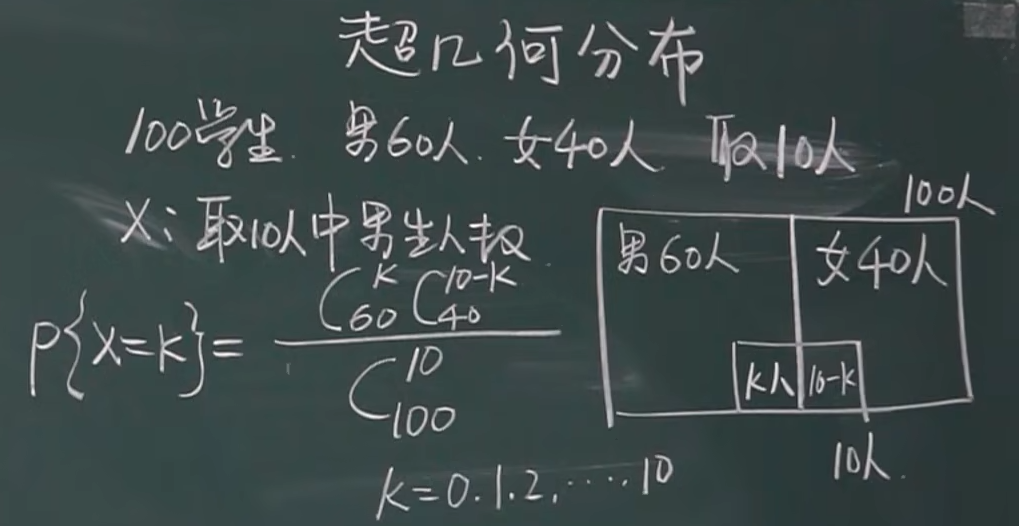 超几何分布
100学生. 男60人. 女40人 取10人
X: 取10人中男生人数
P{X=K}= C_{60}^{K} C_{40}^{10-K} / C_{100}^{10}
K=0.1.2.…..10
100人
男60人 女40人
K人 10-K
10人.